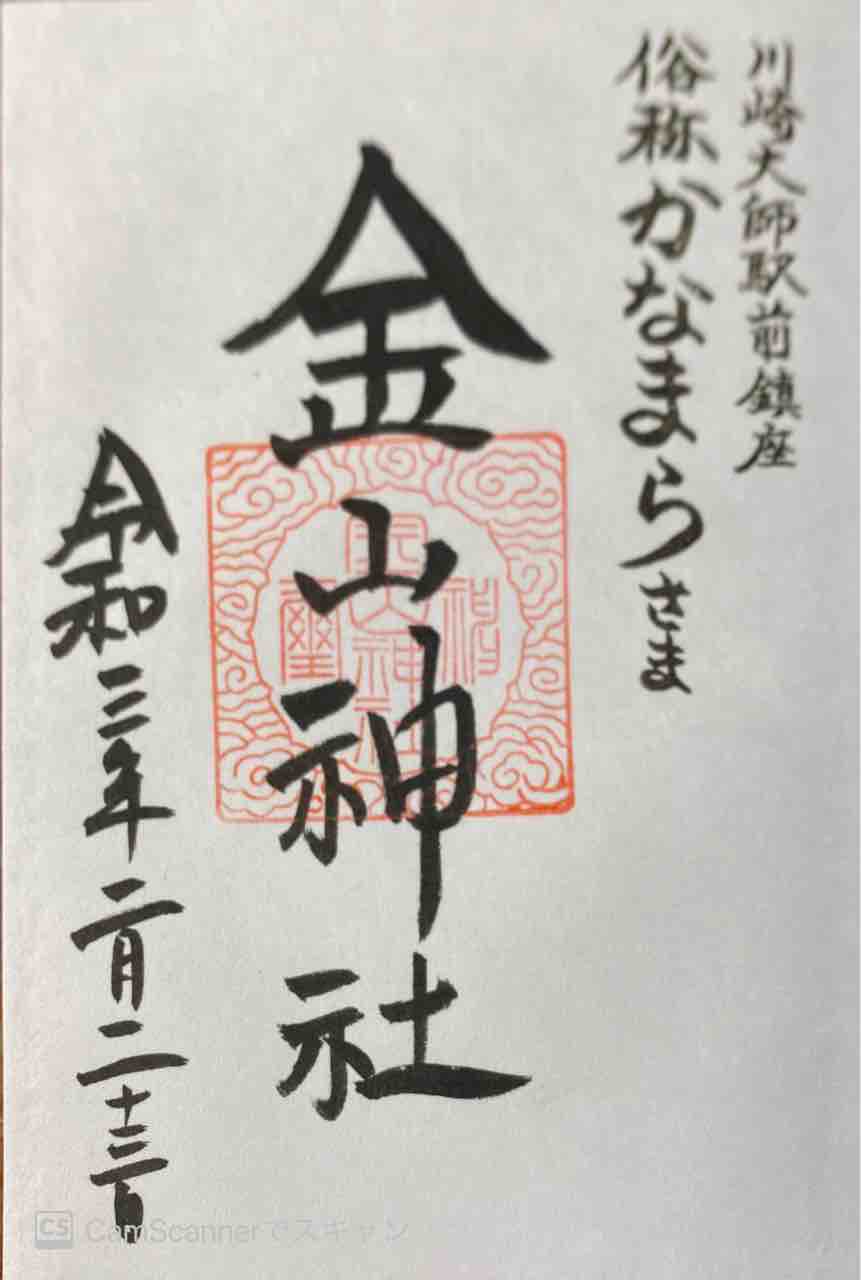 川崎大師駅前鎮座
俗称かなまらさま
金山神社
令和三年二月二十三日
CS CamScannerでスキャン